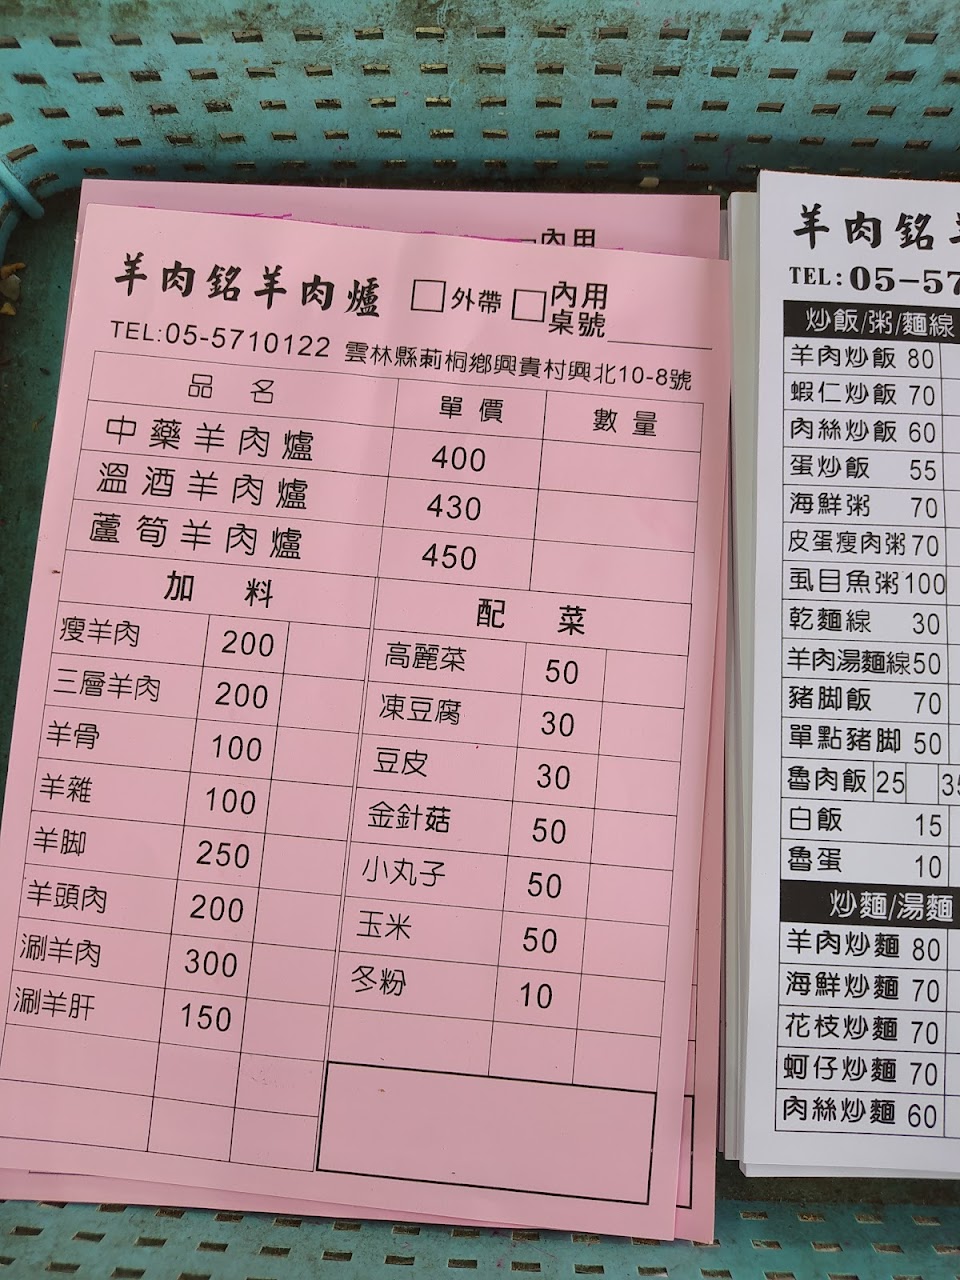 內用
羊肉銘羊肉爐 外帶 內用
桌號
TEL:05-5710122 雲林縣莿桐鄉興貴村興北10-8號
品名 單價 數量
中藥羊肉爐 400
溫酒羊肉爐 430
蘆筍羊肉爐 450
加料
瘦羊肉 200
三層羊肉 200
羊骨 100
羊雜 100
羊脚 250
羊頭肉 200
涮羊肉 300
涮羊肝 150
配菜
高麗菜 50
凍豆腐 30
豆皮 30
金針菇 50
小丸子 50
玉米 50
冬粉 10
羊肉銘
TEL:05-57
炒飯/粥/麵線
羊肉炒飯 80
蝦仁炒飯 70
肉絲炒飯 60
蛋炒飯 55
海鮮粥 70
皮蛋瘦肉粥 70
虱目魚粥 100
乾麵線 30
羊肉湯麵線 50
豬脚飯 70
單點豬脚 50
魯肉飯 25 35
白飯 15
魯蛋 10
炒麵/湯麵
羊肉炒麵 80
海鮮炒麵 70
花枝炒麵 70
蚵仔炒麵 70
肉絲炒麵 60